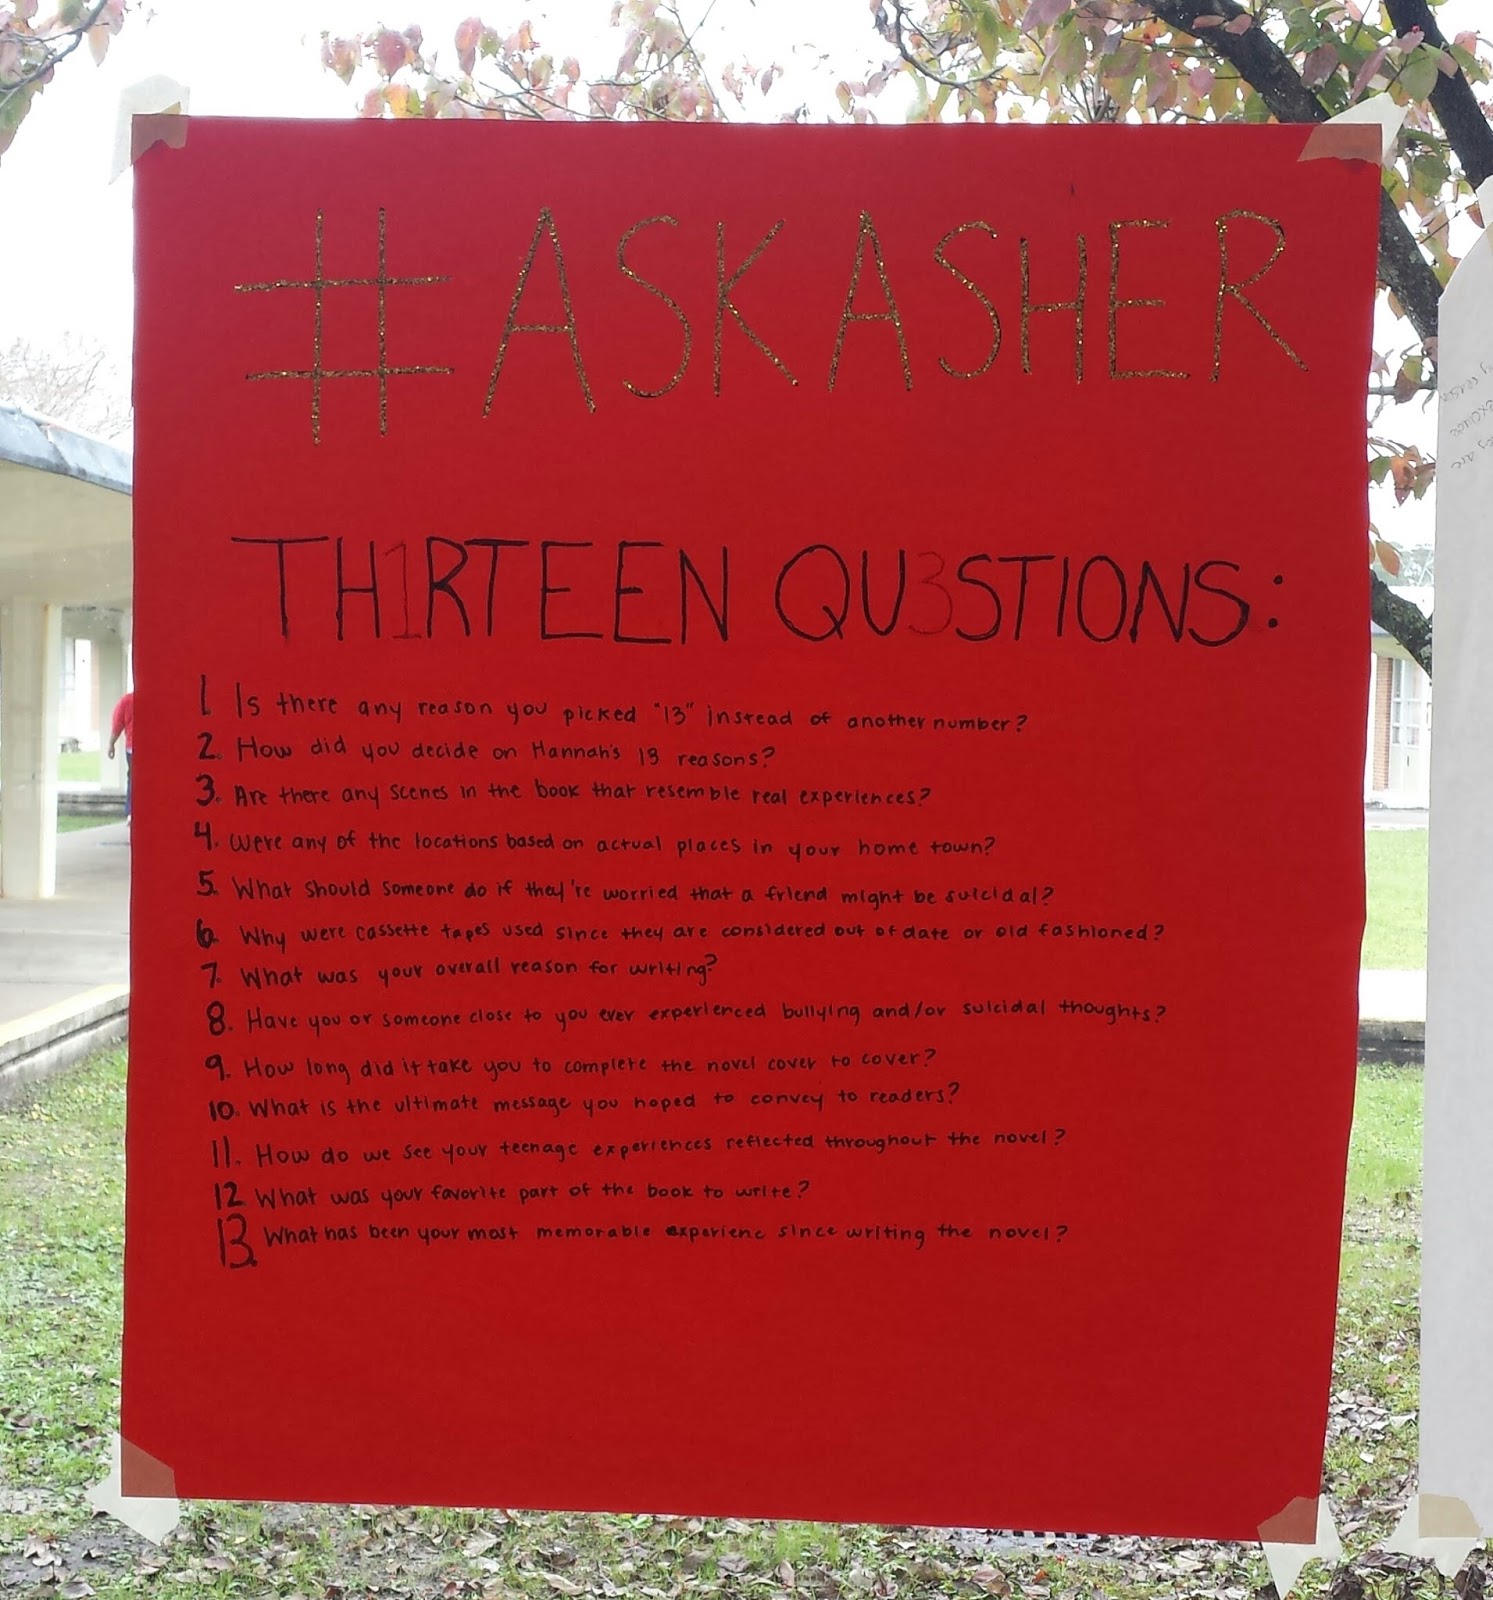 #ASKASHER
TH1RTEEN QU3STIONS:
1. Is there any reason you picked "13" instead of another number?
2. How did you decide on Hannah's 13 reasons?
3. Are there any scenes in the book that resemble real experiences?
4. Were any of the locations based on actual places in your home town?
5. What should someone do if they're worried that a friend might be suicidal?
6. Why were cassette tapes used since they are considered out of date or old fashioned?
7. What was your overall reason for writing?
8. Have you or someone close to you ever experienced bullying and/or suicidal thoughts?
9. How long did it take you to complete the novel cover to cover?
10. What is the ultimate message you hoped to convey to readers?
11. How do we see your teenage experiences reflected throughout the novel?
12 What was your favorite part of the book to write?
13. What has been your most memorable experienc since writing the novel?